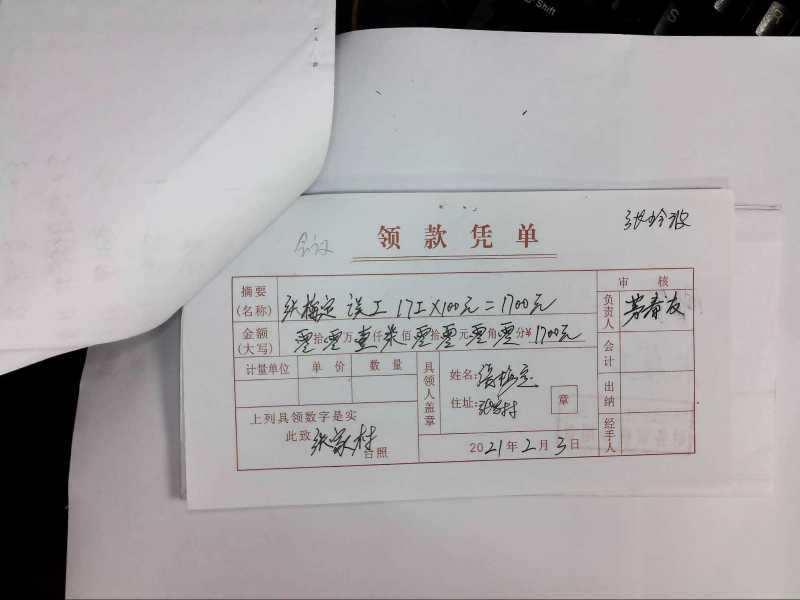 Shift
S
领款凭单
摘要(名称) 张梅定 误工 17工×100元=1700元
审核
金额(大写) 零拾零万壹仟柒佰零拾零元零角零分¥1700元
负责人
计量单位 单价 数量
具领人盖章
姓名:张梅定
住址:张家村
章
会计
出纳
经手人
上列具领数字是实
此致 张家村 台照
2021年2月3日